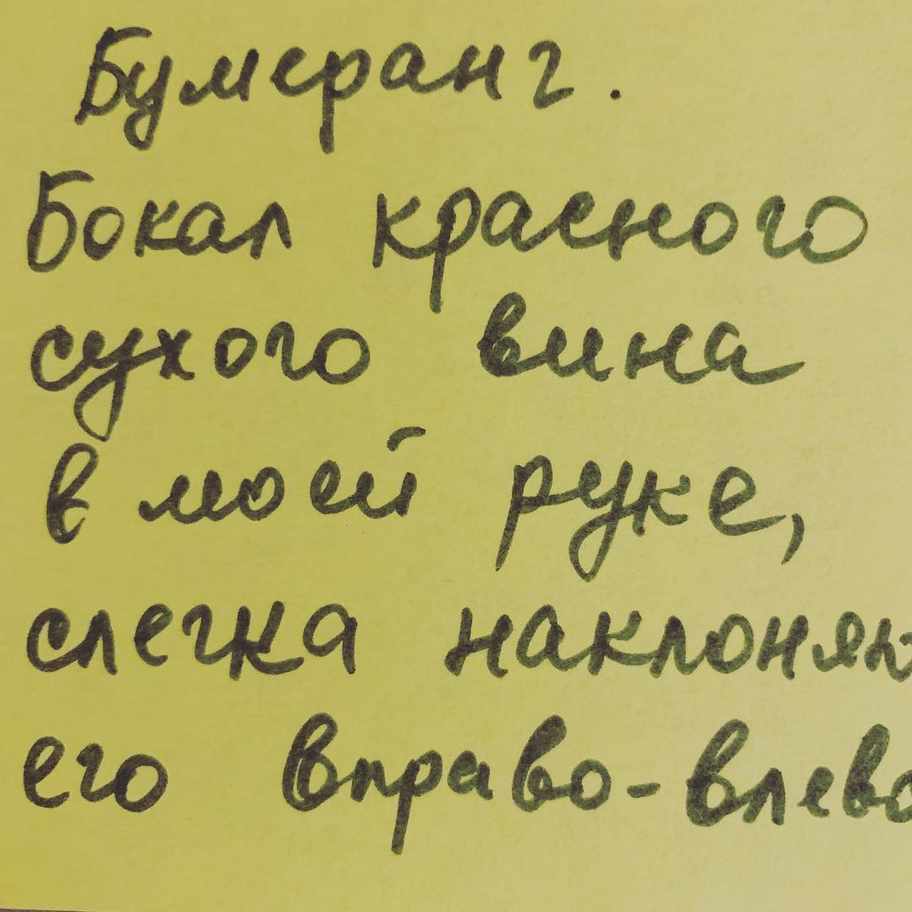 Бумеранг.
Бокал красного
сухого вина
в моей руке,
слегка наклоняю
его вправо-влево